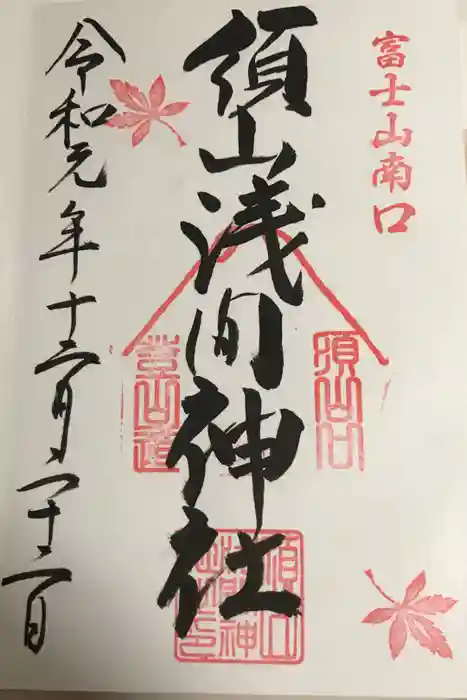 富士山南口
須山浅間神社
須山口
登山道
令和元年十二月二十二日